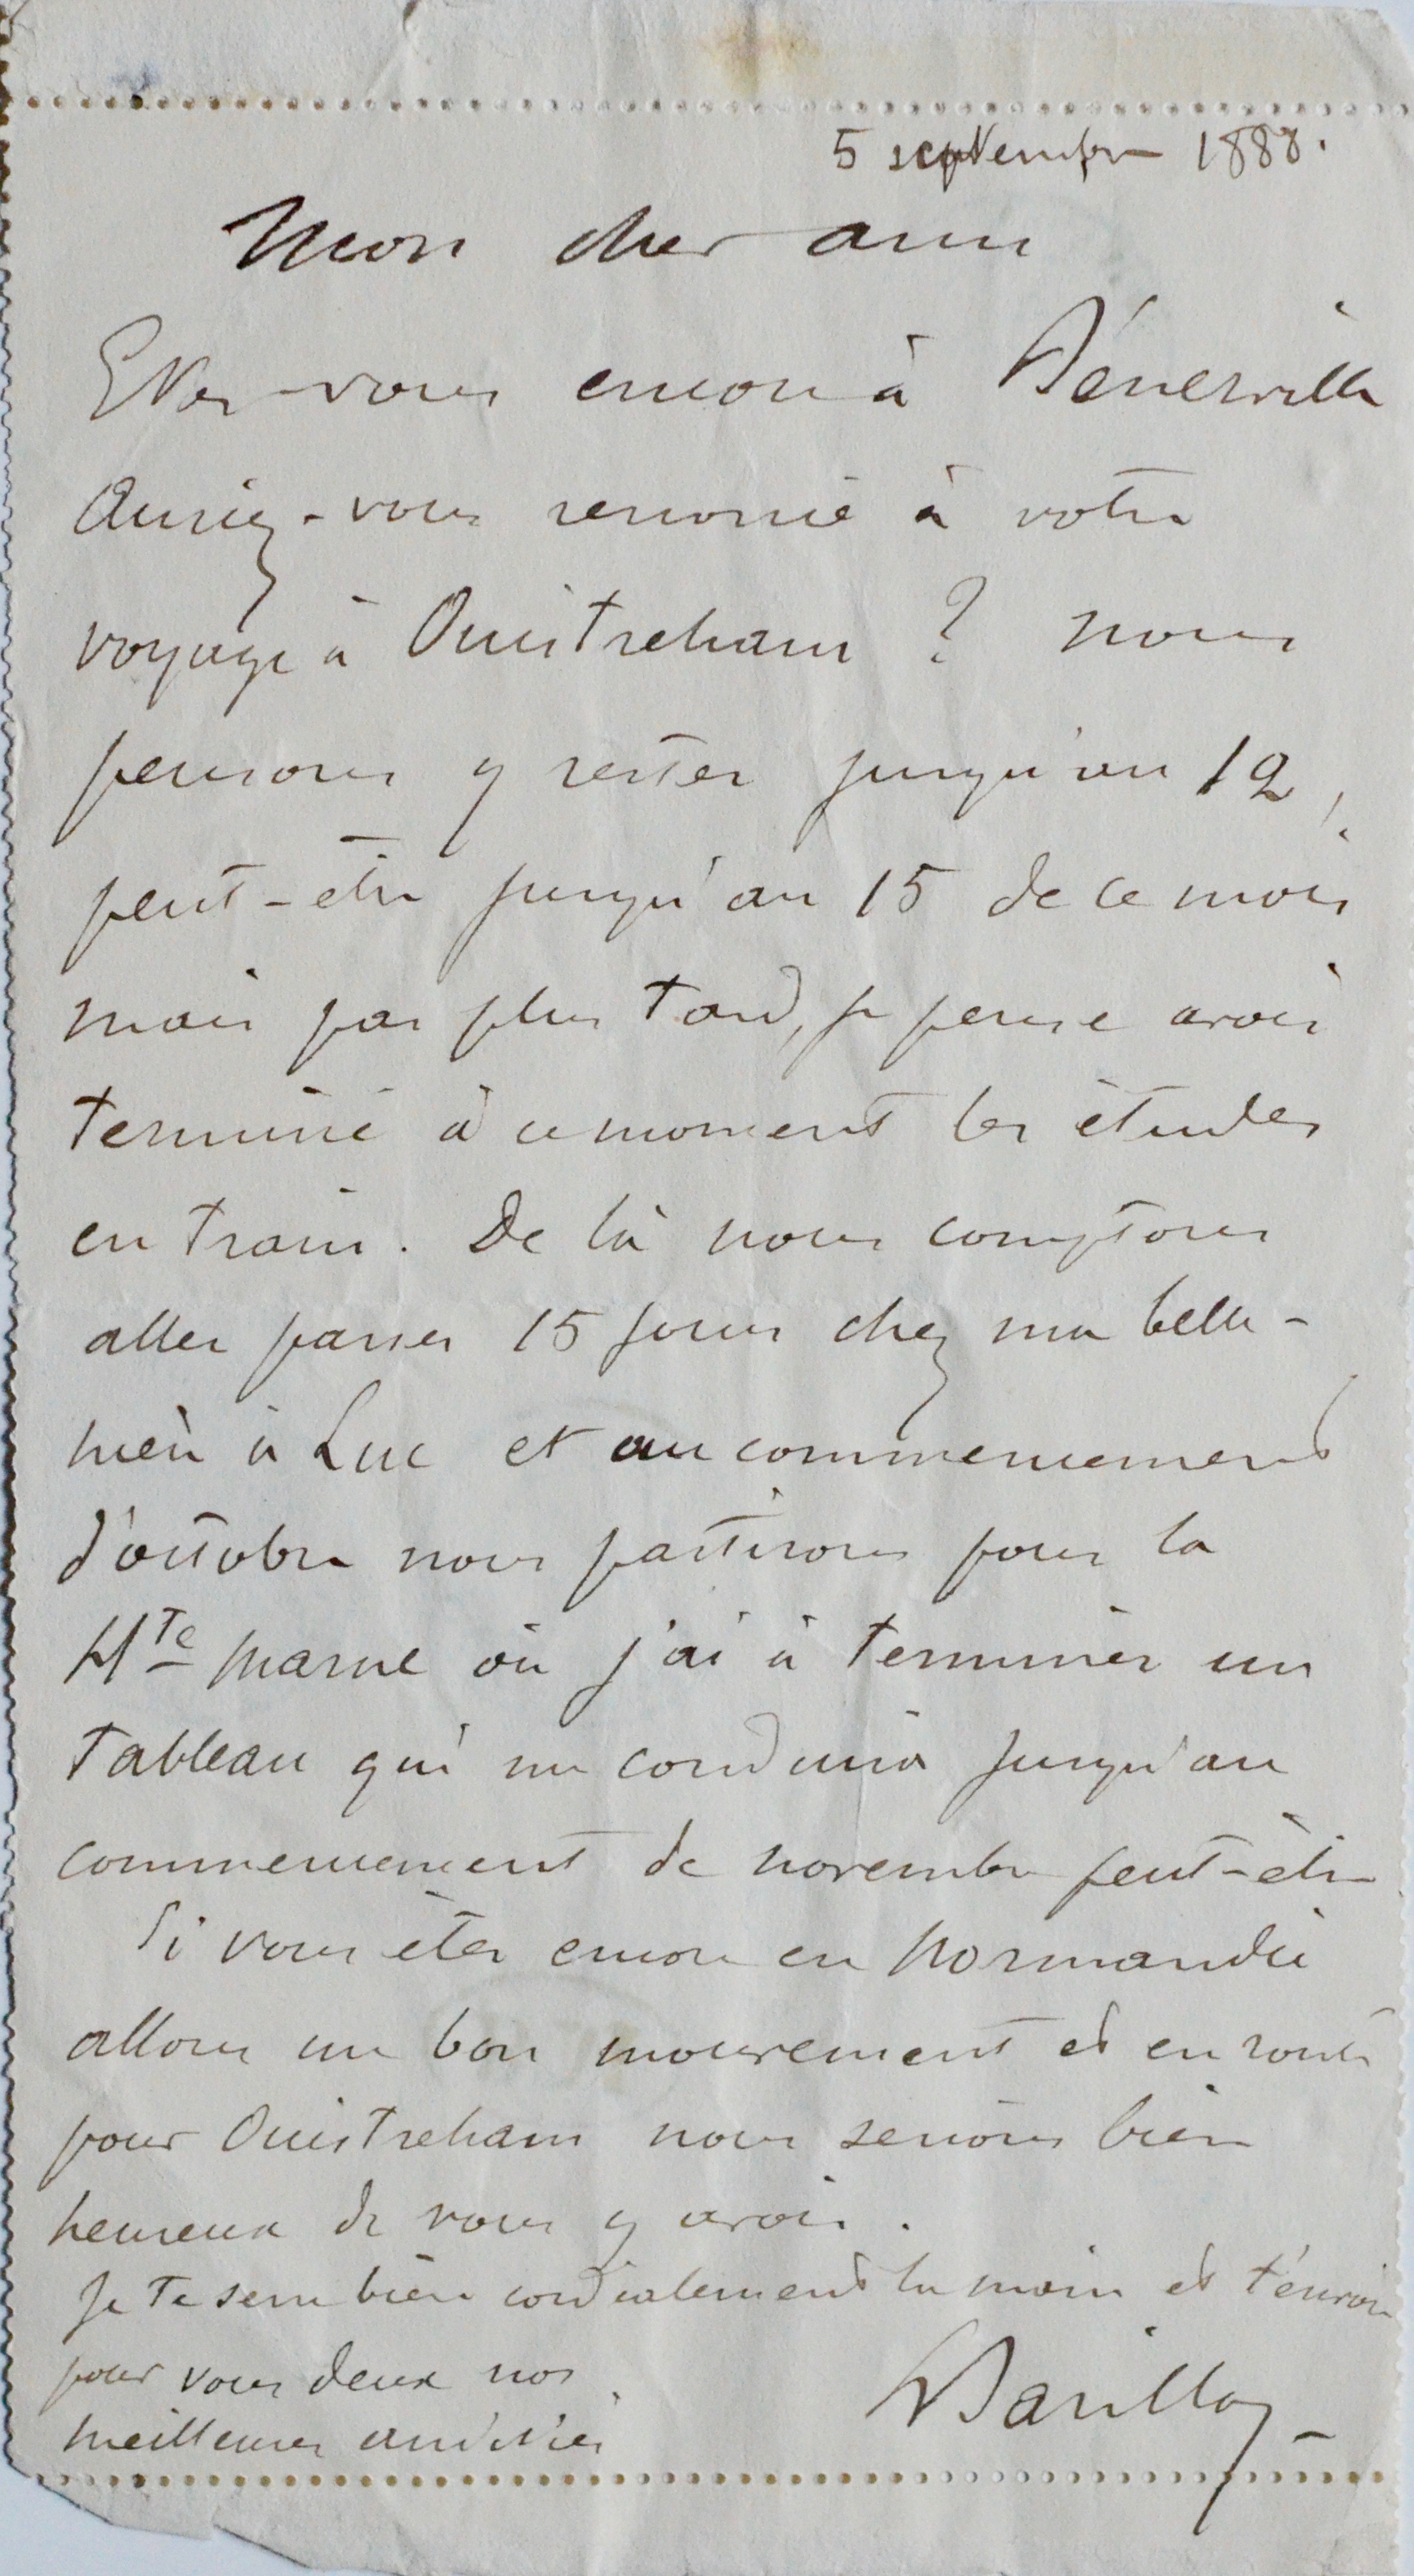 5 septembre 1888.
Mon cher ami
Etes-vous encore à Bénerville
Auriez-vous renoncé à votre
voyage à Ouistreham ? nous
pensons y rester jusqu'au 12,
peut-être jusqu'au 15 de ce mois
mais pas plus tard, je pense avoir
terminé à ce moment les études
en train. De là nous comptons
aller passer 15 jours chez ma belle-
mère à Luc et au commencement
d'octobre nous partirons pour la
Hte Marne où j'ai à terminer un
tableau qui me conduira jusqu'au
commencement de novembre peut-être.
Si vous êtes encore en Normandie
allons un bon mouvement et en route
pour Ouistreham nous serions bien
heureux de vous y avoir.
Je te serre bien cordialement la main et t'envoie
pour vous deux nos
meilleures amitiés
Barillot